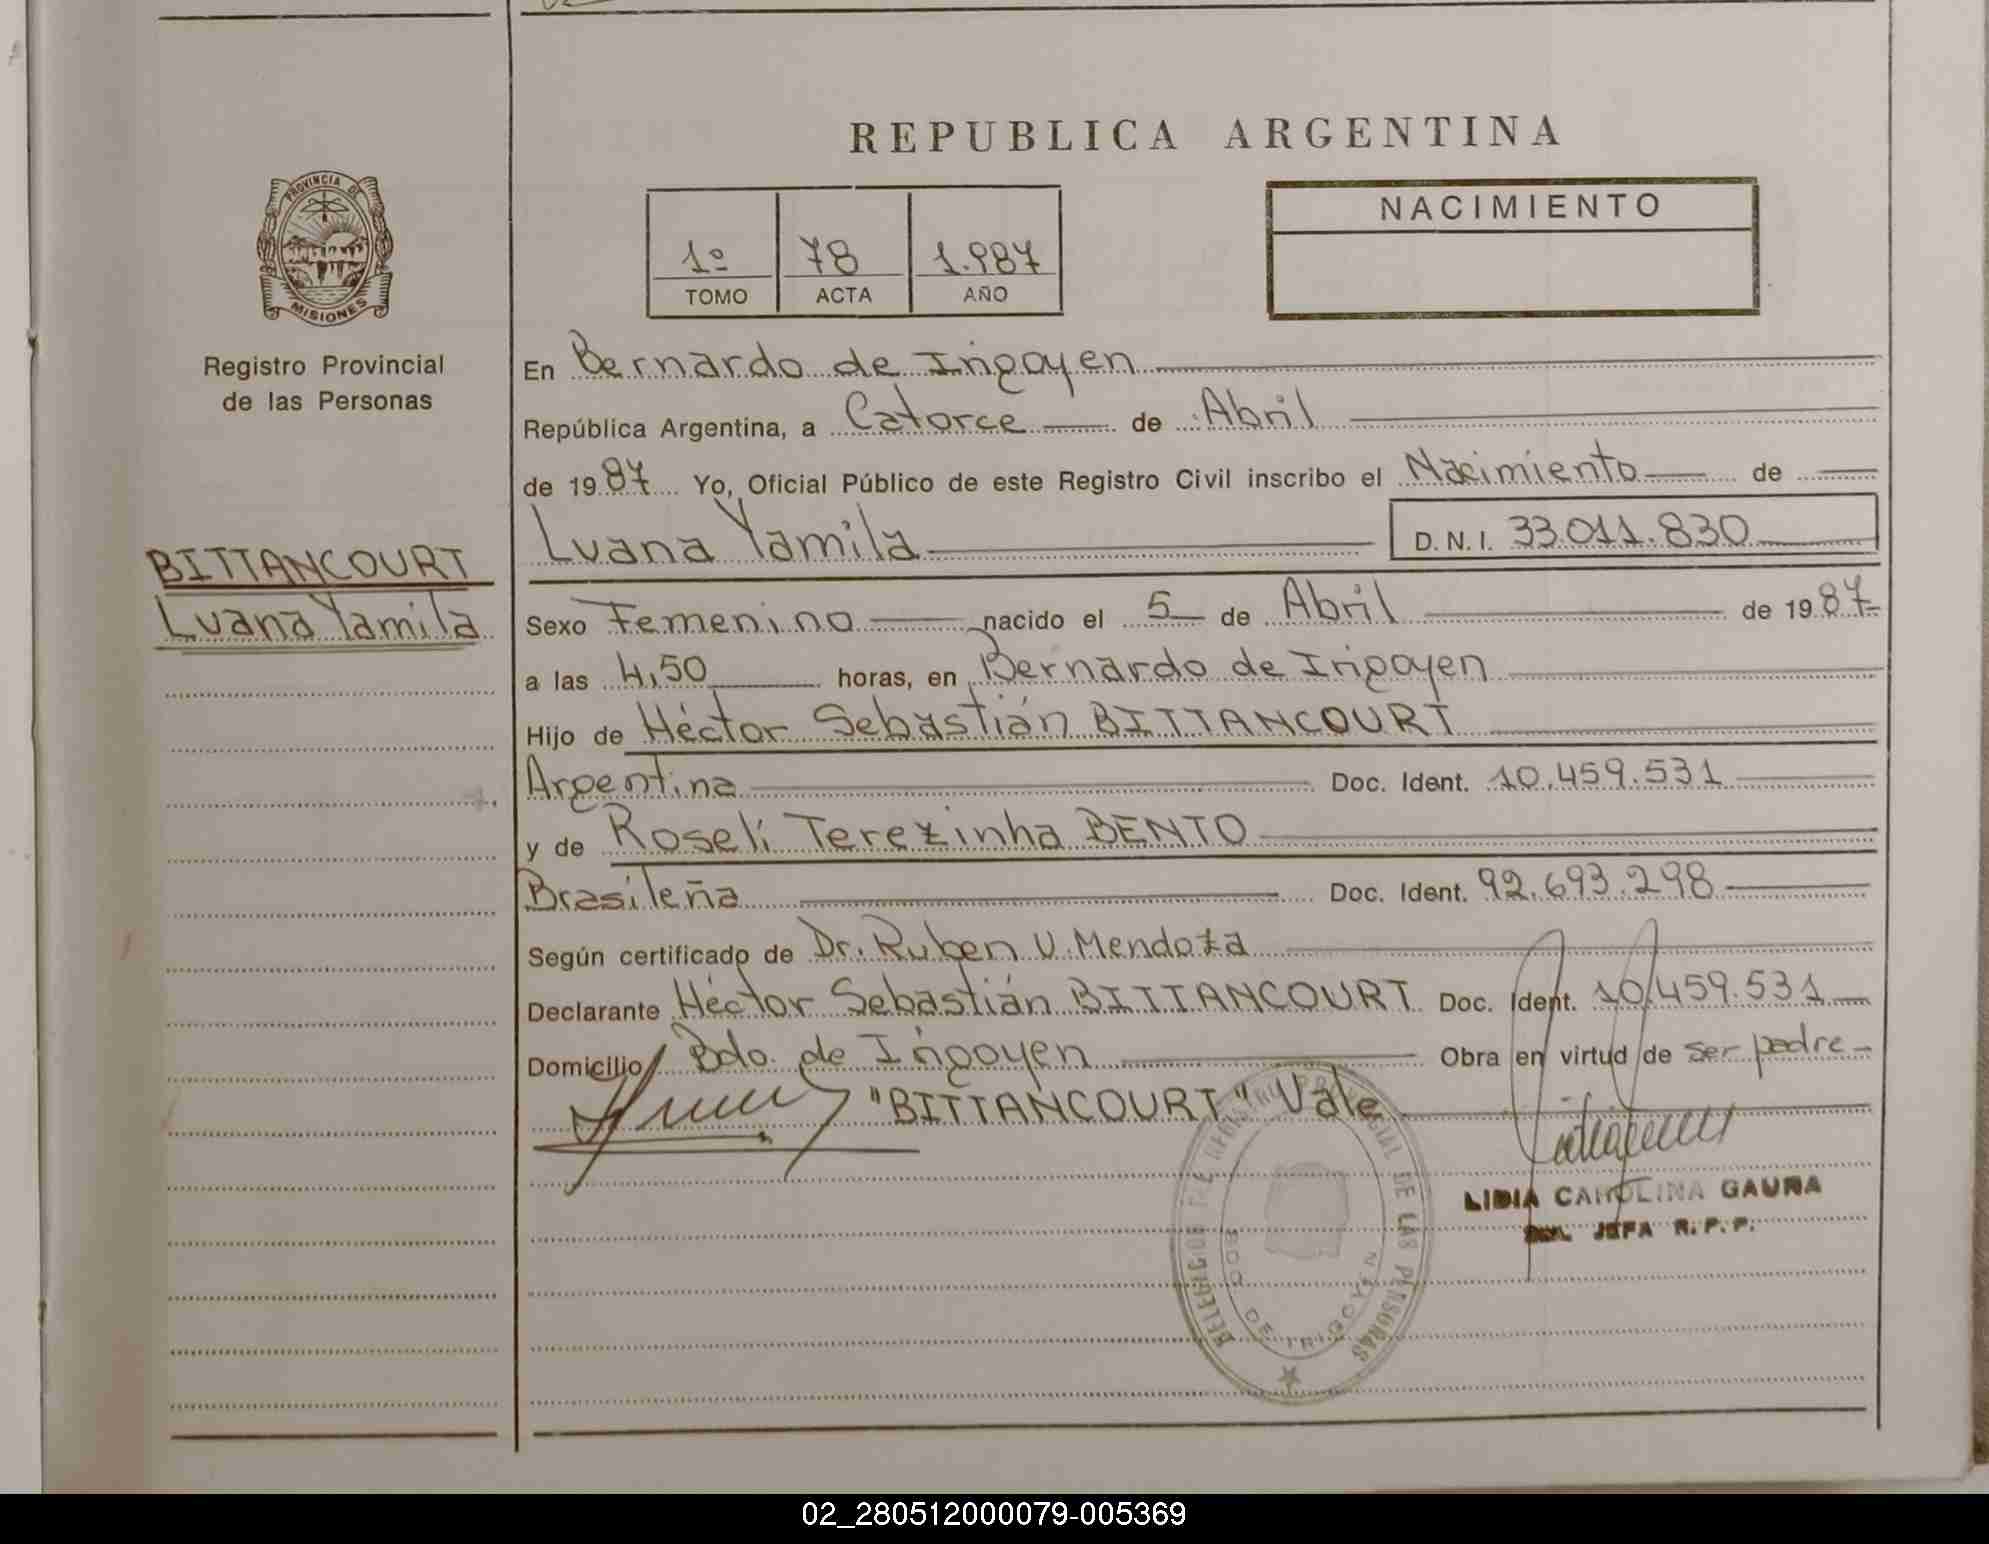 REPUBLICA ARGENTINA
PROVINCIA DE
MISIONES
Registro Provincial
de las Personas
BITTANCOURT
Luana Yamila
1º 78 1.987
TOMO ACTA AÑO
NACIMIENTO
En Bernardo de Irigoyen
República Argentina, a Catorce de Abril
de 1987 Yo, Oficial Público de este Registro Civil inscribo el Nacimiento de
Luana Yamila D.N.I. 33.011.830
Sexo Femenino nacido el 5 de Abril de 1987
a las 4,50 horas, en Bernardo de Irigoyen
Hijo de Héctor Sebastián BITTANCOURT
Argentina Doc. Ident. 10.459.531
y de Roseli Terezinha BENTO
Brasileña Doc. Ident. 92.693.298
Según certificado de Dr. Ruben V. Mendoza
Declarante Héctor Sebastián BITTANCOURT Doc. Ident. 10.459.531
Domicilio Bdo. de Irigoyen Obra en virtud de ser padre
"BITTANCOURT" Vale
LIDIA CAROLINA GAUNA
JEFA R.P.P.
REGISTRO PROVINCIAL DE LAS PERSONAS
BDO DE IRIGOYEN
02_280512000079-005369